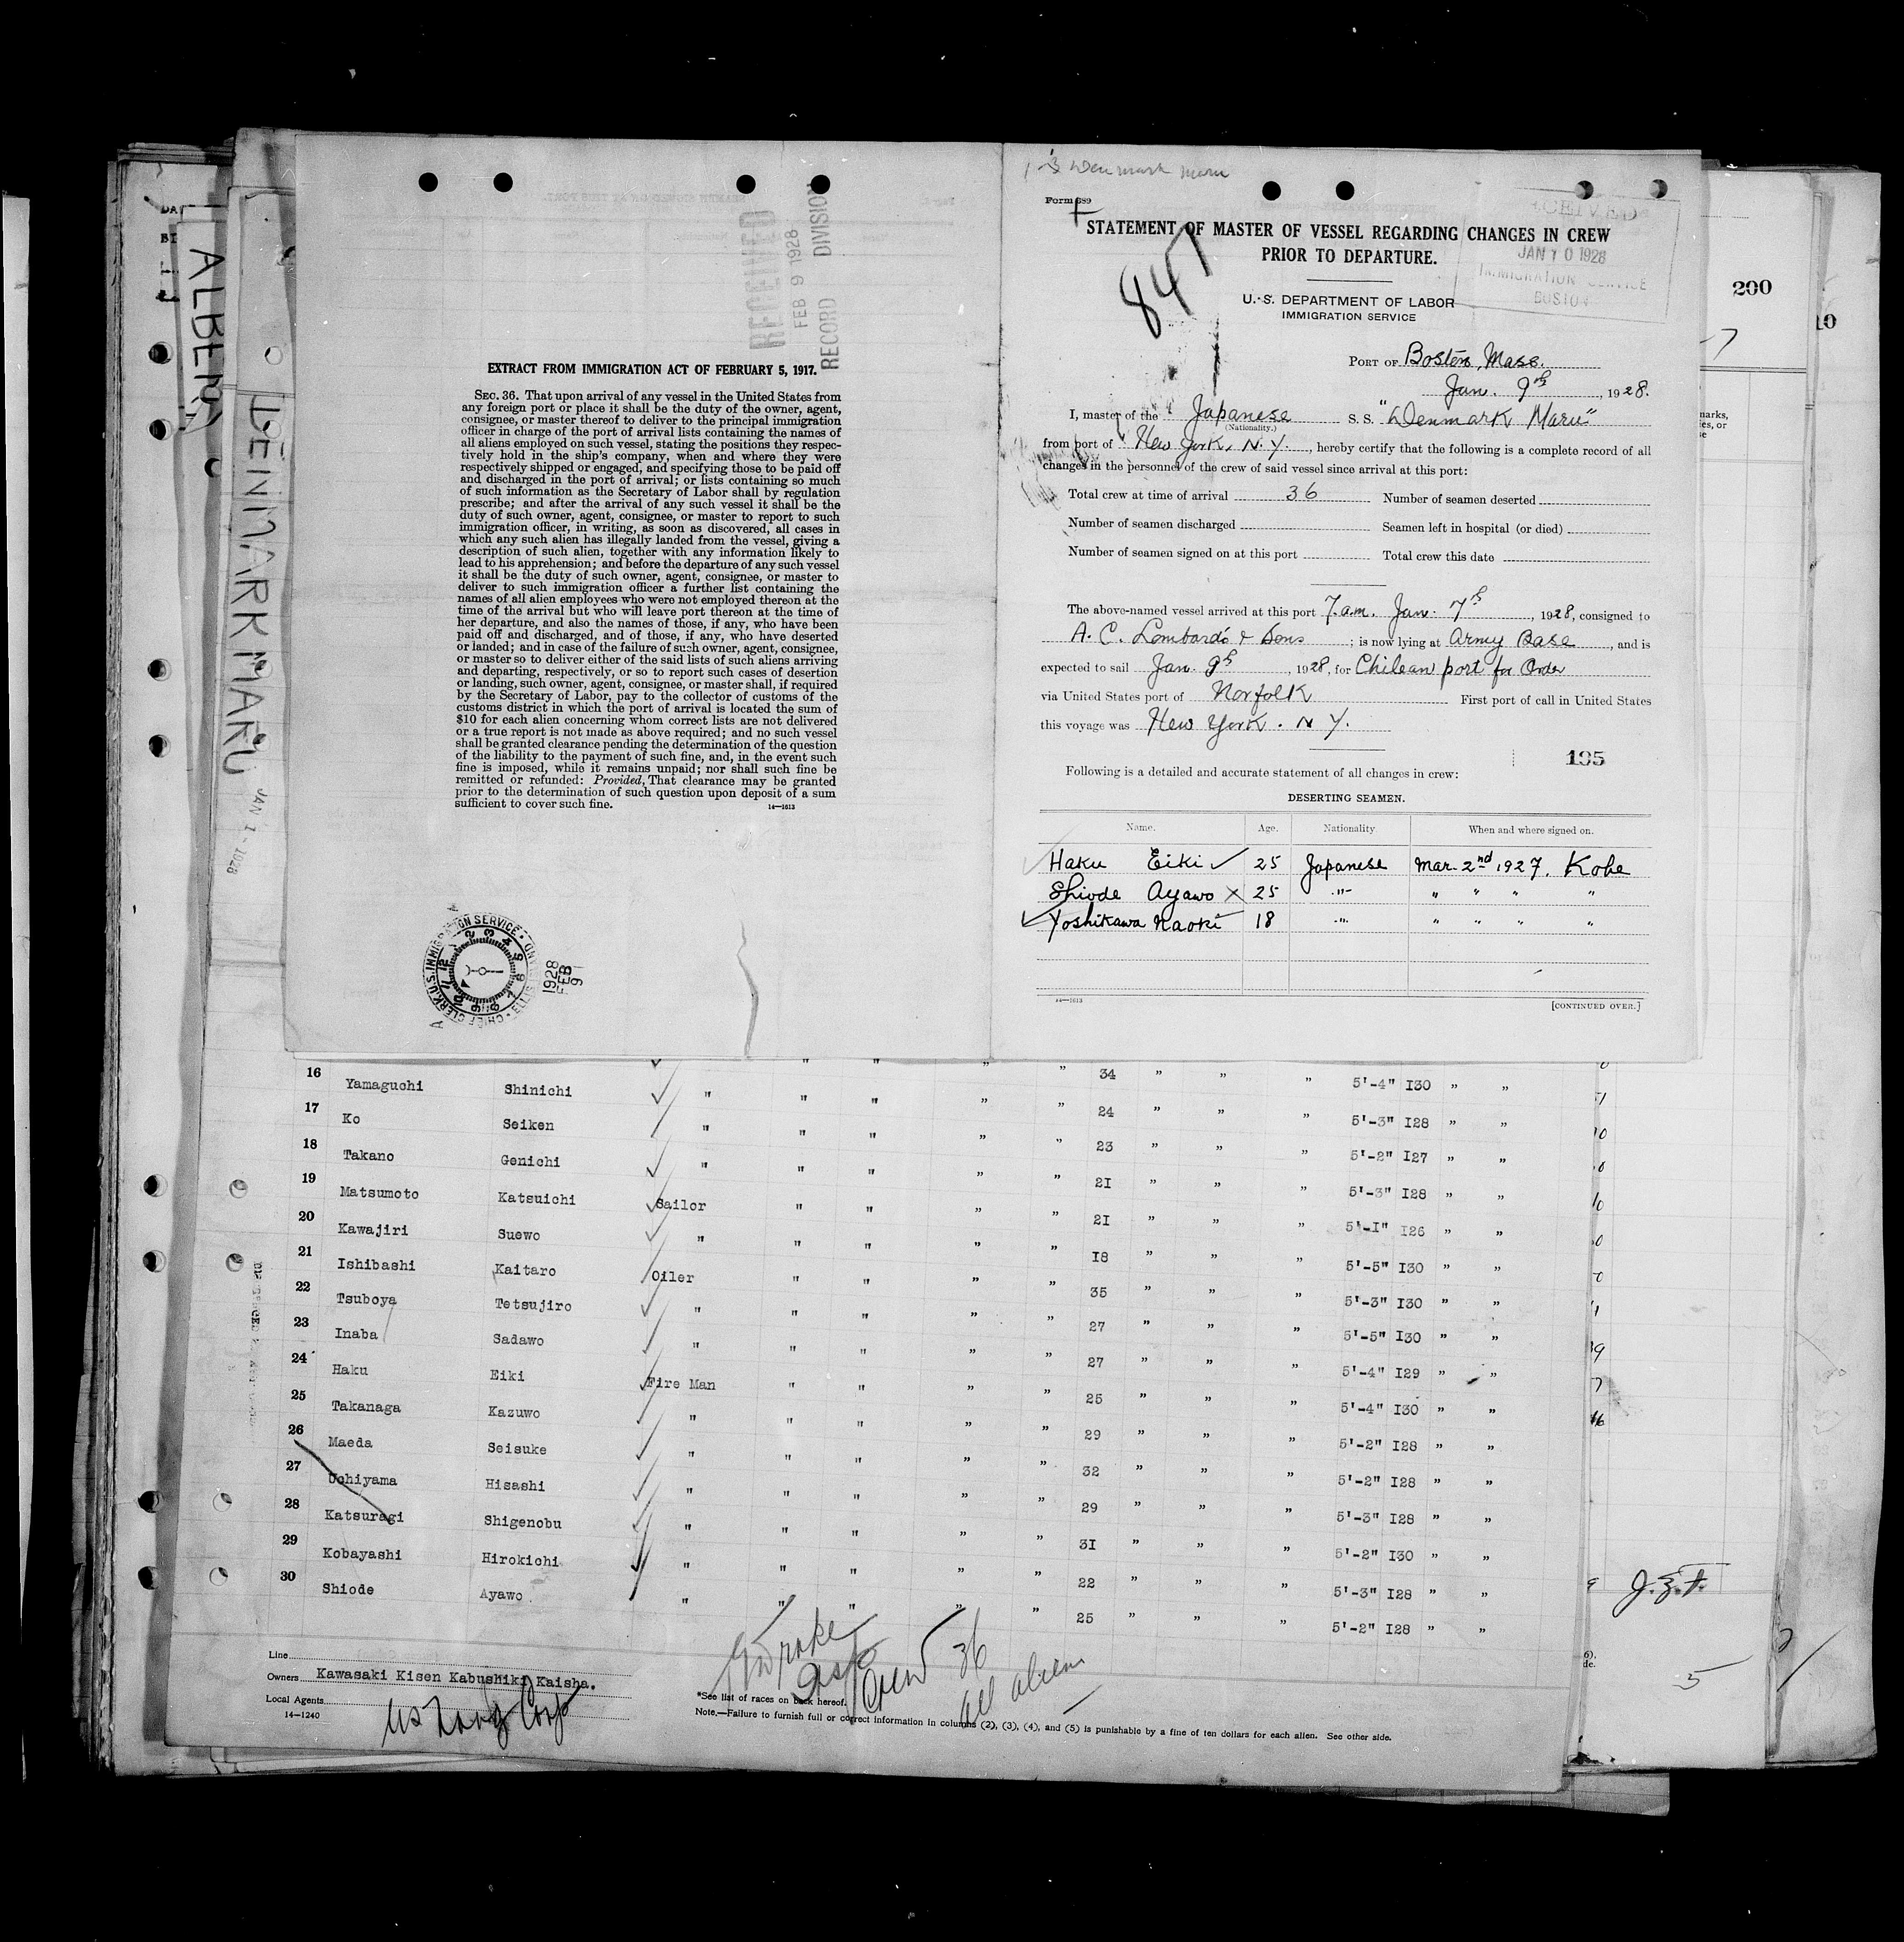 EXTRACT FROM IMMIGRATION ACT OF FEBRUARY 5, 1917.
SEC. 36. That upon arrival of any vessel in the United States from
any foreign port or place it shall be the duty of the owner, agent,
consignee, or master thereof to deliver to the principal immigration
officer in charge of the port of arrival lists containing the names of
all aliens employed on such vessel, stating the positions they respec-
tively hold in the ship's company, when and where they were
respectively shipped or engaged, and specifying those to be paid off
and discharged in the port of arrival; or lists containing so much
of such information as the Secretary of Labor shall by regulation
prescribe; and after the arrival of any such vessel it shall be the
duty of such owner, agent, consignee, or master to report to such
immigration officer, in writing, as soon as discovered, all cases in
which any such alien has illegally landed from the vessel, giving a
description of such alien, together with any information likely to
lead to his apprehension; and before the departure of any such vessel
it shall be the duty of such owner, agent, consignee, or master to
deliver to such immigration officer a further list containing the
names of all alien employees who were not employed thereon at the
time of the arrival but who will leave port thereon at the time of
her departure, and also the names of those, if any, who have been
paid off and discharged, and of those, if any, who have deserted
or landed; and in case of the failure of such owner, agent, consignee,
or master so to deliver either of the said lists of such aliens arriving
and departing, respectively, or so to report such cases of desertion
or landing, such owner, agent, consignee, or master shall, if required
by the Secretary of Labor, pay to the collector of customs of the
customs district in which the port of arrival is located the sum of
$10 for each alien concerning whom correct lists are not delivered
or a true report is not made as above required; and no such vessel
shall be granted clearance pending the determination of the question
of the liability to the payment of such fine, and, in the event such
fine is imposed, while it remains unpaid; nor shall such fine be
remitted or refunded: Provided, That clearance may be granted
prior to the determination of such question upon deposit of a sum
sufficient to cover such fine.
14—1613
RECEIVED
FEB 9 1928
RECORD DIVISION
1928
FEB
9
ALBERT
DENMARK MARU
JAN 1 - 1928
Denmark Maru
Form 689
STATEMENT OF MASTER OF VESSEL REGARDING CHANGES IN CREW
PRIOR TO DEPARTURE.
847
RECEIVED
JAN 10 1928
IMMIGRATION SERVICE
BOSTON
U. S. DEPARTMENT OF LABOR
IMMIGRATION SERVICE
PORT OF Boston, Mass.
Jan. 9th, 1928.
I, master of the Japanese S. S. "Denmark Maru"
(Nationality.)
from port of New York, N. Y., hereby certify that the following is a complete record of all
changes in the personnel of the crew of said vessel since arrival at this port:
Total crew at time of arrival 36 Number of seamen deserted
Number of seamen discharged Seamen left in hospital (or died)
Number of seamen signed on at this port Total crew this date
The above-named vessel arrived at this port 7. a.m. Jan. 7th, 1928, consigned to
A. C. Lombard's & Sons; is now lying at Army Base, and is
expected to sail Jan. 9th, 1928, for Chilean port for Order
via United States port of Norfolk First port of call in United States
this voyage was New York. N Y.
195
Following is a detailed and accurate statement of all changes in crew:
DESERTING SEAMEN.
Name. Age. Nationality When and where signed on.
Haku Eiki ✓ 25 Japanese Mar. 2nd 1927. Kobe
Shiode Ayawo X 25 " " " " "
✓ Yoshikawa Naoki 18 " " " " "
14—1613 [CONTINUED OVER.]
200
16 Yamaguchi Shinichi ✓ " " " " " 34 " " " 5'-4" I30 " "
17 Ko Seiken " " " " " 24 " " " 5'-3" I28 " "
18 Takano Genichi ✓ " " " " " 23 " " " 5'-2" I27 " "
19 Matsumoto Katsuichi ✓ Sailor " " " " 2I " " " 5'-3" I28 " "
20 Kawajiri Suewo ✓ " " " " " 2I " " " 5'-I" I26 " "
21 Ishibashi Kaitaro Oiler " " " " I8 " " " 5'-5" I30 " "
22 Tsuboya Tetsujiro ✓ " " " " " 35 " " " 5'-3" I30 " "
23 Inaba Sadawo ✓ " " " " " 27 " " " 5'-5" I30 " "
24 Haku Eiki ✓ Fire Man " " " " 27 " " " 5'-4" I29 " "
25 Takanaga Kazuwo ✓ " " " " " 25 " " " 5'-4" I30 " "
26 Maeda Seisuke ✓ " " " " " 29 " " " 5'-2" I28 " "
27 Uchiyama Hisashi ✓ " " " " " 32 " " " 5'-2" I28 " "
28 Katsuragi Shigenobu ✓ " " " " " 29 " " " 5'-3" I28 " "
29 Kobayashi Hirokichi ✓ " " " " " 3I " " " 5'-2" I30 " "
30 Shiode Ayawo " " " " " 22 " " " 5'-3" I28 " "
25 " " " 5'-2" I28 " "
J.Z.F.
Line
Owners Kawasaki Kisen Kabushiki Kaisha.
Local Agents
14—1240
Crew 36
all aliens
*See list of races on back hereof.
Note.—Failure to furnish full or correct information in columns (2), (3), (4), and (5) is punishable by a fine of ten dollars for each alien. See other side.
5